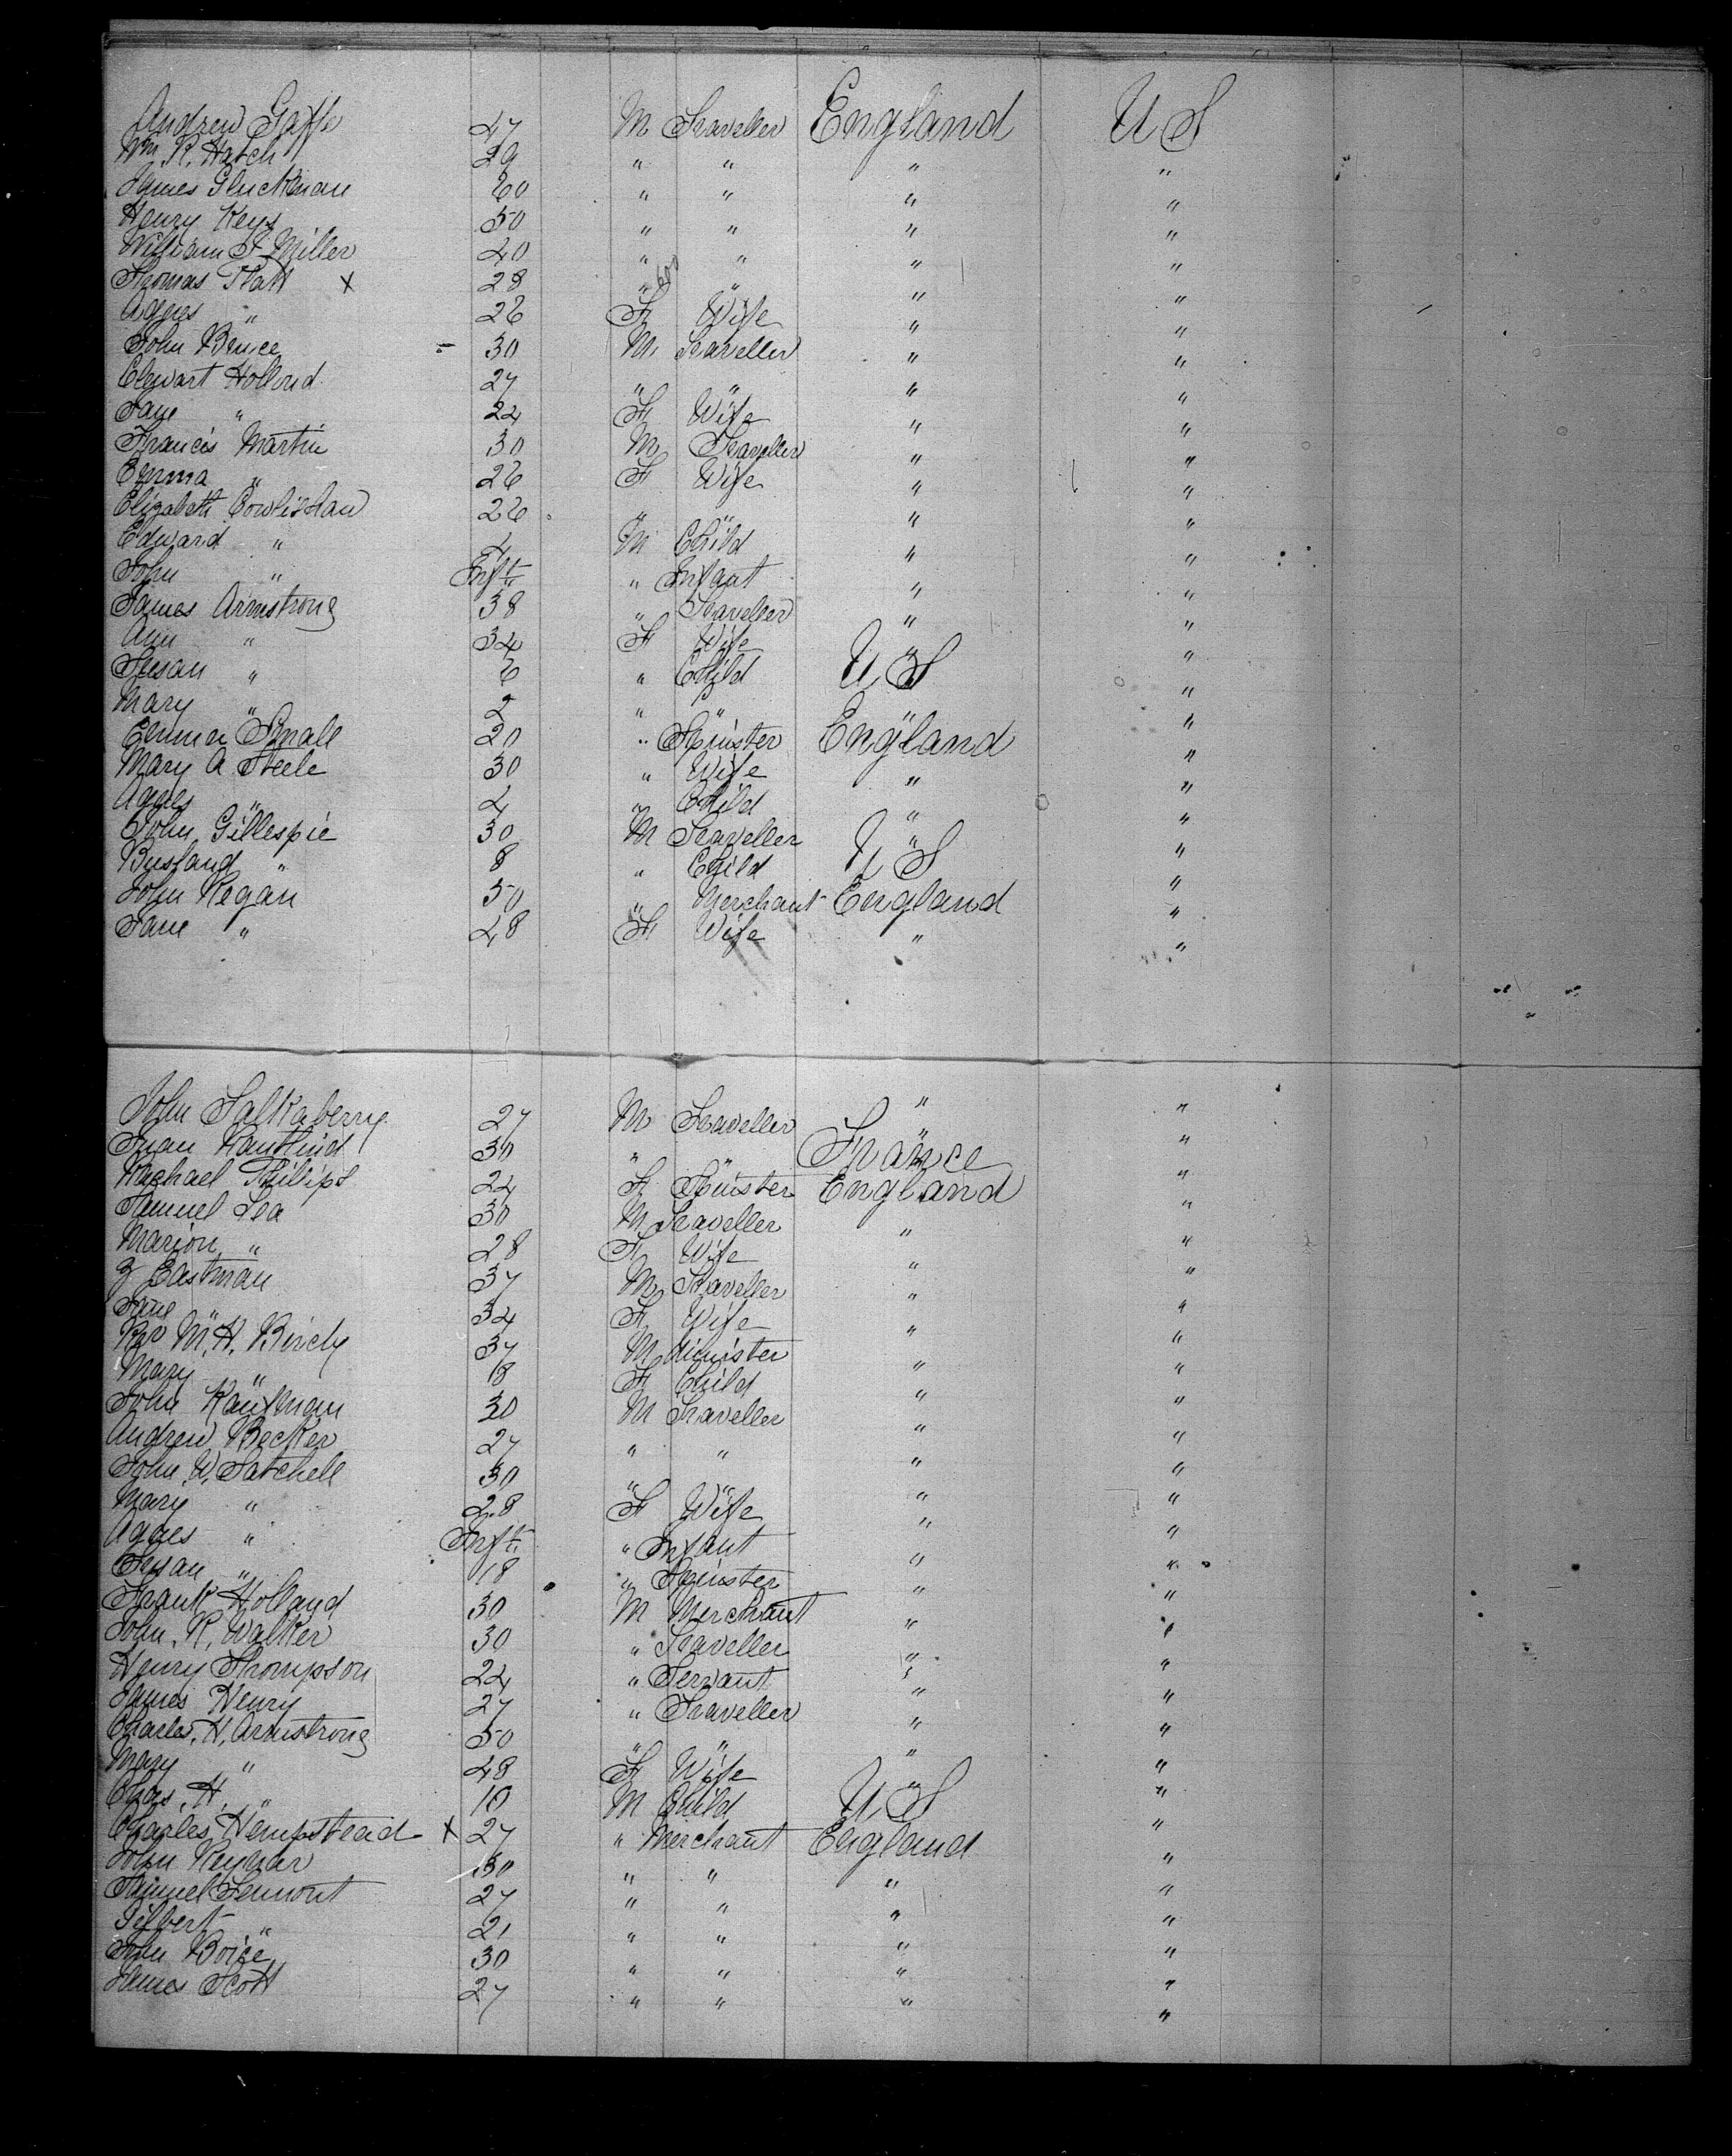 Andrew Gaffe 47 M Traveller England U S
Wm. R. Hatch 29 " " " "
James Gluckman 60 " " " "
Henry Keys 50 " " " "
William F Miller 40 " " " "
Thomas Platt x 28 " " " "
Agnes " 26 F Wife " "
John Bruce 30 M Traveller " "
Edwart Hollond 27 " " " "
Jane " 24 F Wife " "
Francis Martin 30 M Traveller " "
Emma " 26 F Wife " "
Elizabeth Cowlishaw 26 " " " "
Edward " 4 M Child " "
John " Inft " Infant " "
James Armstrong 38 " Traveller " "
Ann " 34 F Wife " "
Susan " 6 " Child U S "
Mary " 2 " " " "
Emma Small 20 " Spinster England "
Mary A Steele 30 " Wife " "
Agnes " 4 " Child " "
John Gillespie 30 M Traveller " "
" 8 " Child U S "
John Regan 50 " Merchant England "
Jane " 48 F Wife " "
John Salkaberry 27 M Traveller " "
30 " " France "
Michael Phillips 24 F Spinster England "
Samuel Lea 30 M Traveller " "
Marion " 28 F Wife " "
Eastman 37 M Traveller " "
Jane " 34 F Wife " "
Rev M. H. Birch 37 M Minister " "
Mary " 8 F Child " "
John Kaufman 30 M Traveller " "
Andrew Becker 27 " " " "
John W. Satchell 30 " " " "
Mary " 28 F Wife " "
Agnes " Inft " Infant " "
Susan " 18 " Spinster " "
Frank Holland 30 M Merchant " "
John. R. Walker 30 " Traveller " "
Henry Thompson 24 " Servant " "
James Henry 27 " Traveller " "
Charles. H. Armstrong 50 " " " "
Mary " 48 F Wife " "
Chas. H. " 10 M Child U S "
Charles Hempstead x 27 " Merchant England "
John 30 " " " "
Samuel Lemont 27 " " " "
Gilbert " 21 " " " "
John Boice 30 " " " "
James Scott 27 " " " "